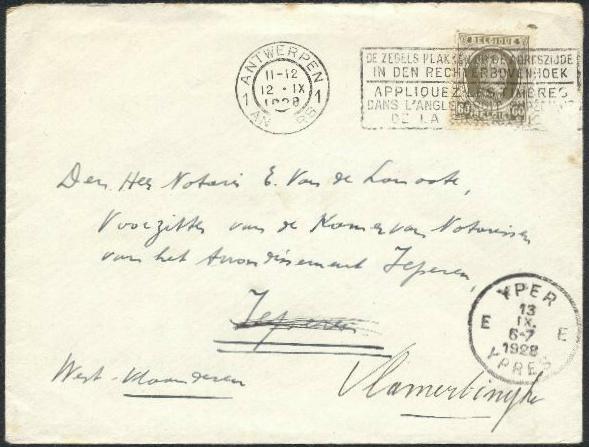 ANTWERPEN
11-12
12 · IX
1928
1 1
BELGIQUE
DE ZEGELS PLAKKEN OP DE ADRESZIJDE
IN DEN RECHTERBOVENHOEK
APPLIQUEZ LES TIMBRES
DANS L'ANGLE
DE LA
Den Heer Notaris E. Van de Lanoote,
Voorzitter van de Kamer van Notarissen
van het Arrondissement Ieperen,
Ieperen
West-Vlaanderen
Vlamertinghe
YPER
13
IX
6-7
1928
E E
YPRES